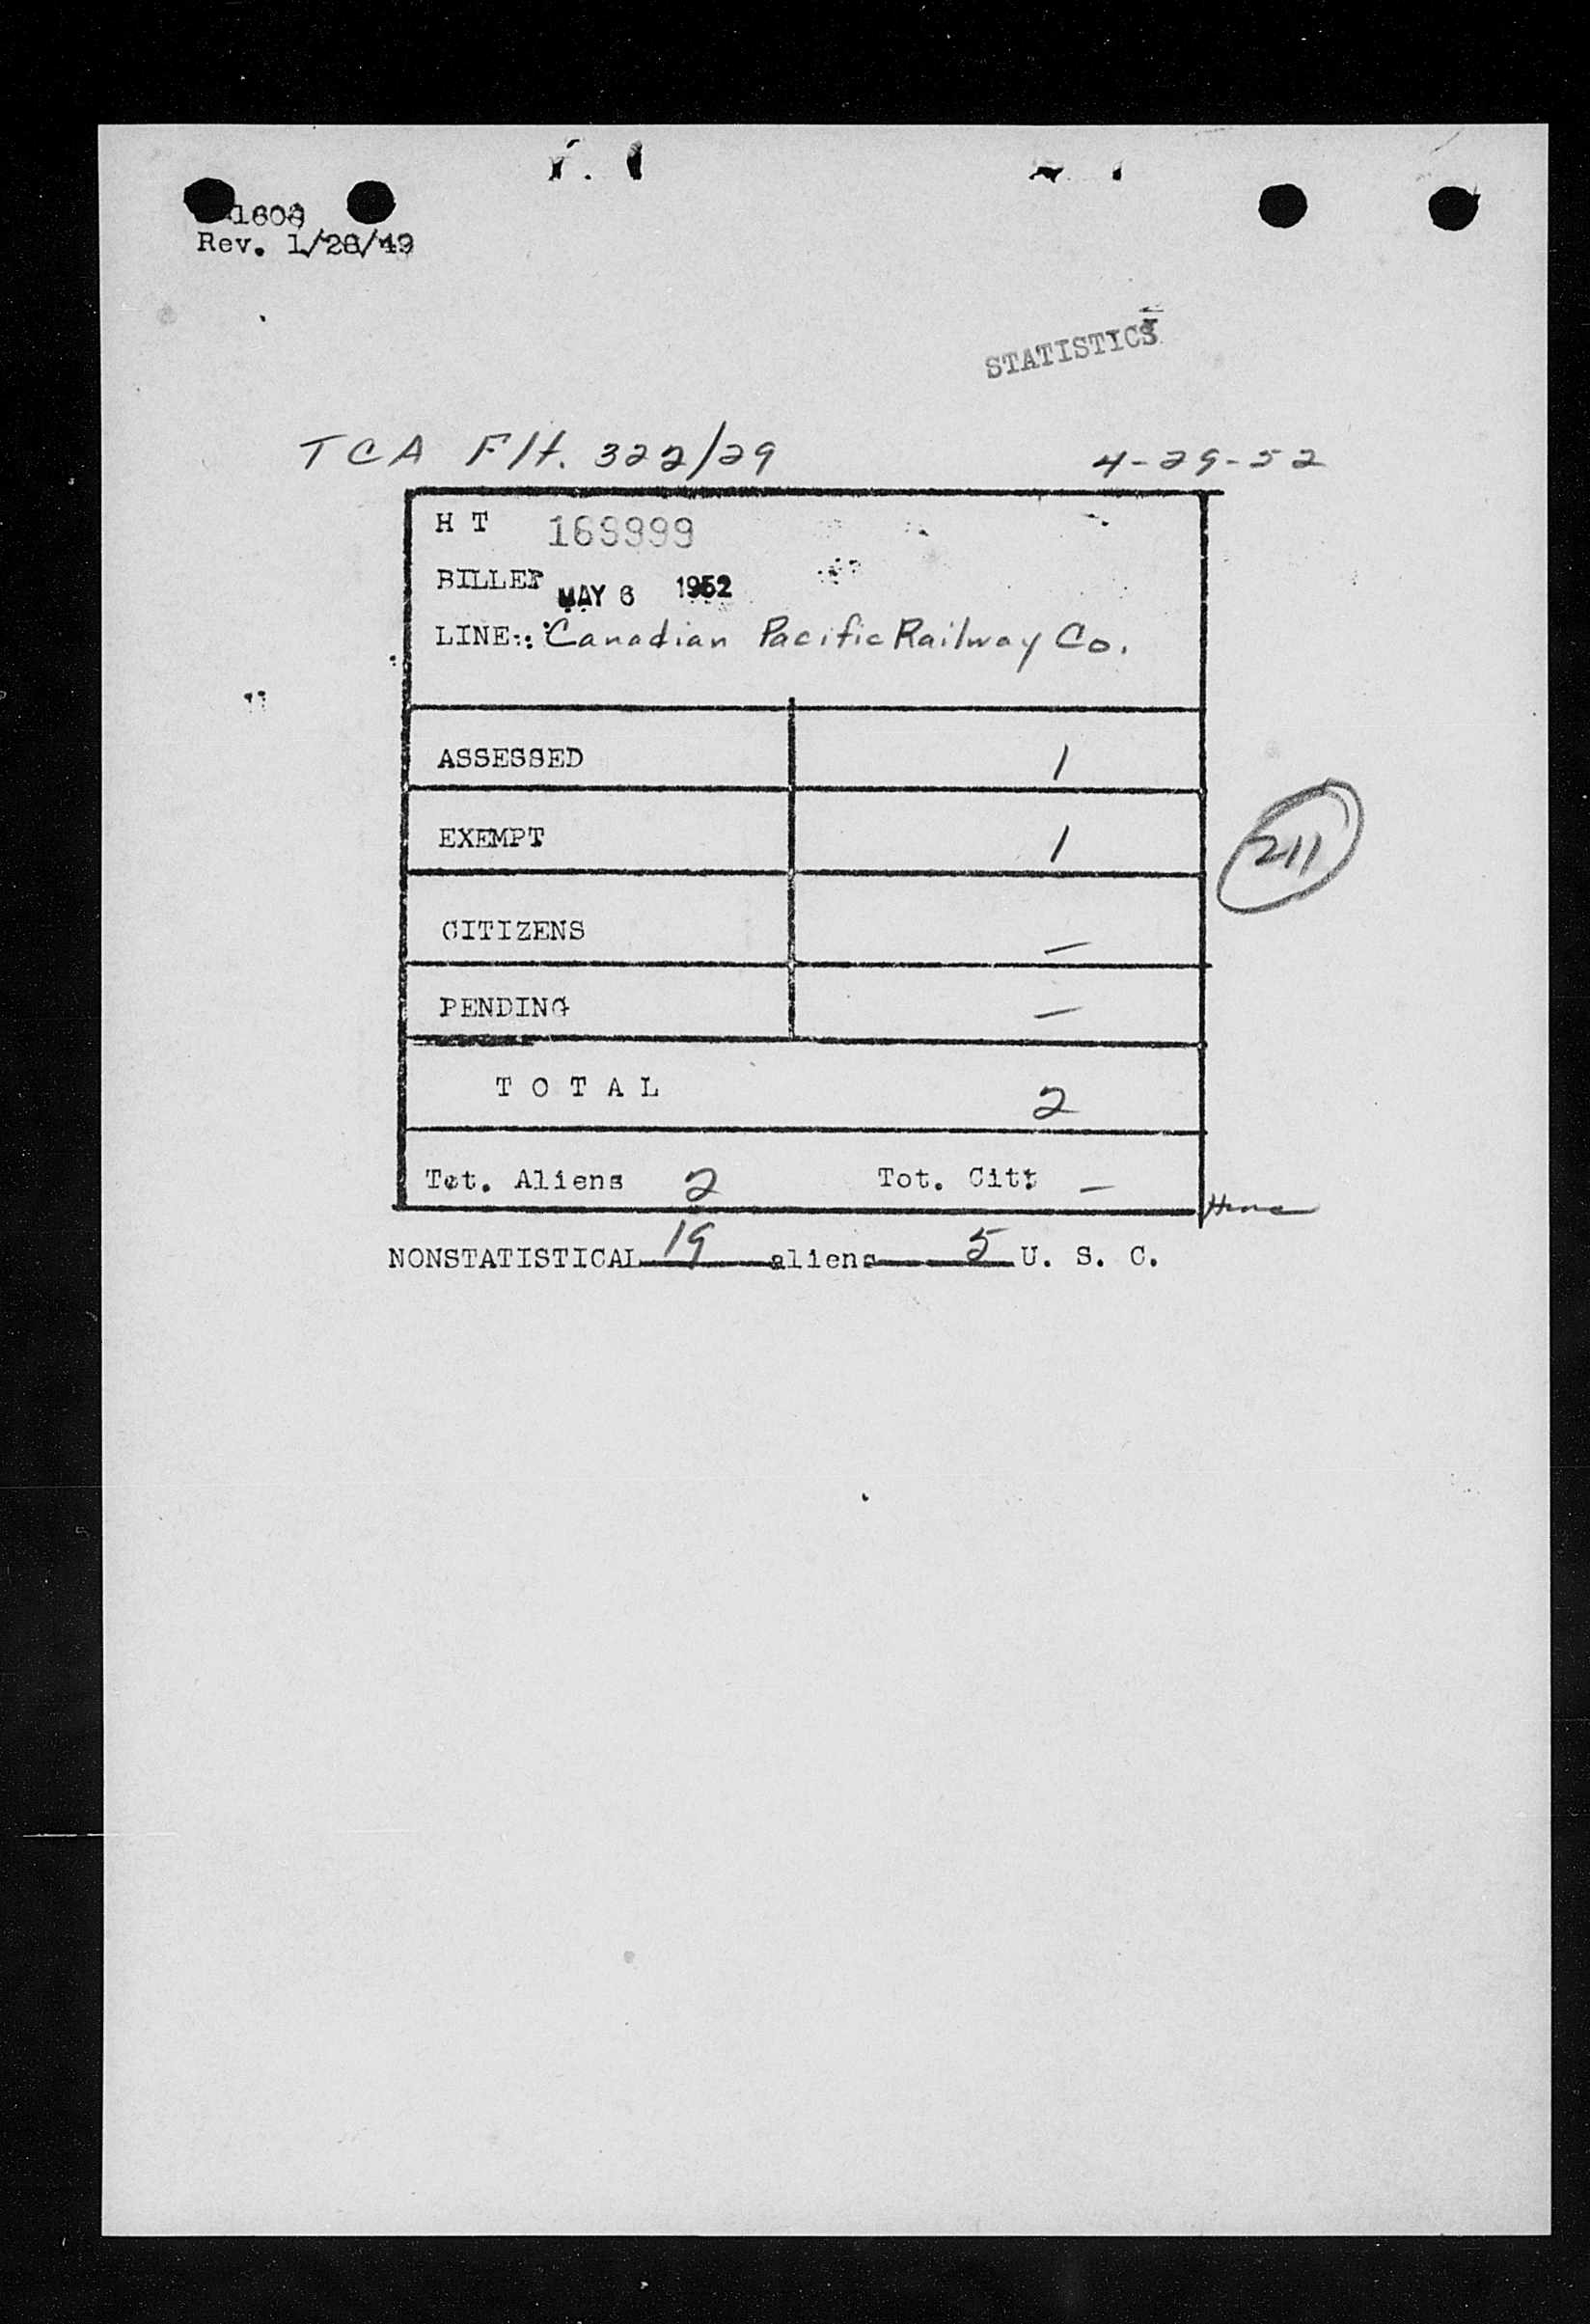 1608
Rev. 1/28/49
STATISTICS
TCA Flt. 322/29 4-29-52
H T 169999
BILLED MAY 6 1952
LINE: Canadian Pacific Railway Co.
ASSESSED 1
EXEMPT 1
211
CITIZENS –
PENDING –
T O T A L 2
Tot. Aliens 2 Tot. Cit: –
NONSTATISTICAL 19 aliens 5 U. S. C.